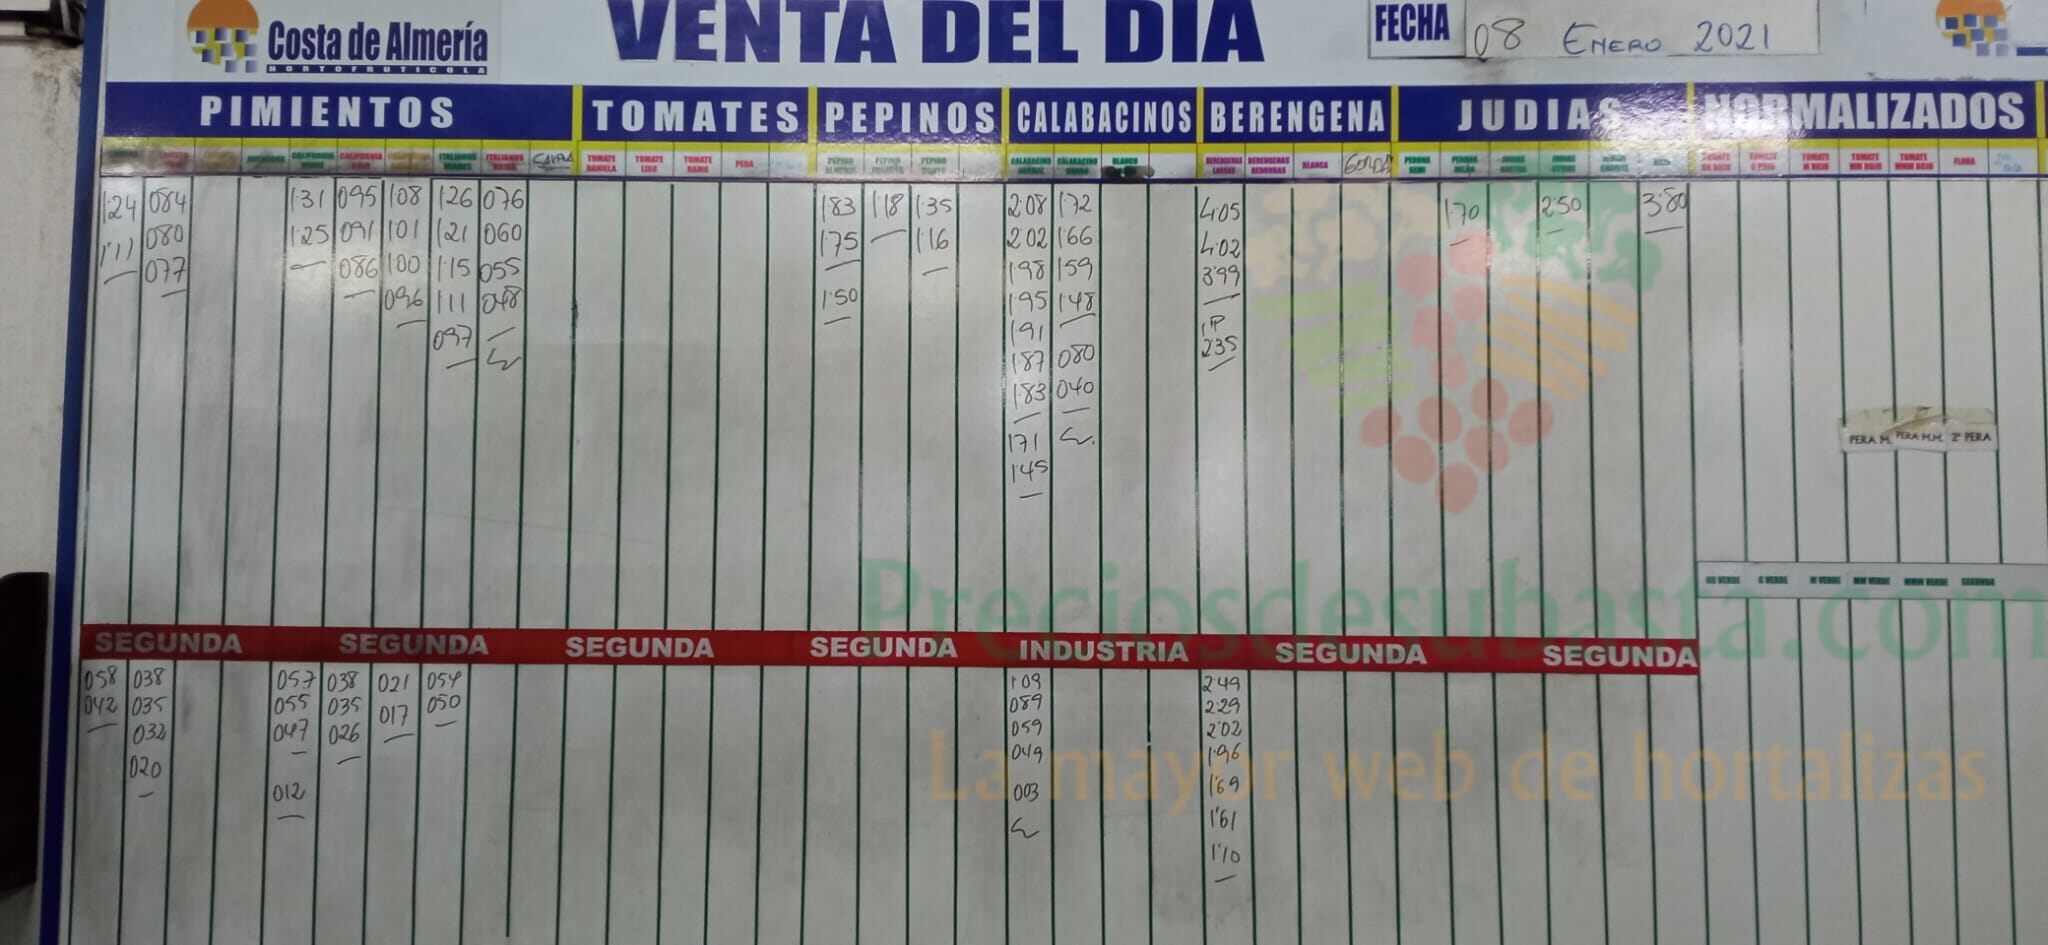 Costa de Almería
HORTOFRUTICOLA
VENTA DEL DIA
FECHA
08 ENERO 2021
PIMIENTOS TOMATES PEPINOS CALABACINOS BERENGENA JUDIAS NORMALIZADOS
CALIFORNIA CALIFORNIA ITALIANOS ITALIANOS TOMATE DANIELA TOMATE LISO TOMATE RAMO PERA PEPINO ALMERIA PEPINO CALABACINO CALABACINO BLANCO BERENGENAS LARGAS BERENGENAS REDONDAS BLANCA GORDA PERONA
1'24 084 1'31 095 1'08 1'26 076 1'83 1'18 1'35 2'08 1'72 4'05 1'70 2'50 3'80
1'11 080 1'25 091 101 1'21 060 1'75 1'16 2'02 1'66 4'02
077 086 100 1'15 055 1'98 1'59 3'99
096 1'11 048 1'50 1'95 1'48
097 1'91 1P
1'87 080 2'35
1'83 040
1'71
1'45
PERA M. PERA M.M. 2ª PERA
GG VERDE G VERDE M VERDE MM VERDE MMM VERDE SEGUNDA
Preciosdesubasta.com
SEGUNDA SEGUNDA SEGUNDA SEGUNDA INDUSTRIA SEGUNDA SEGUNDA
058 038 057 038 021 054 1'09 2'49
042 035 055 035 017 050 089 2'29
032 047 026 059 2'02
020 049 1'96
012 003 1'69
1'61
1'10
La mayor web de hortalizas